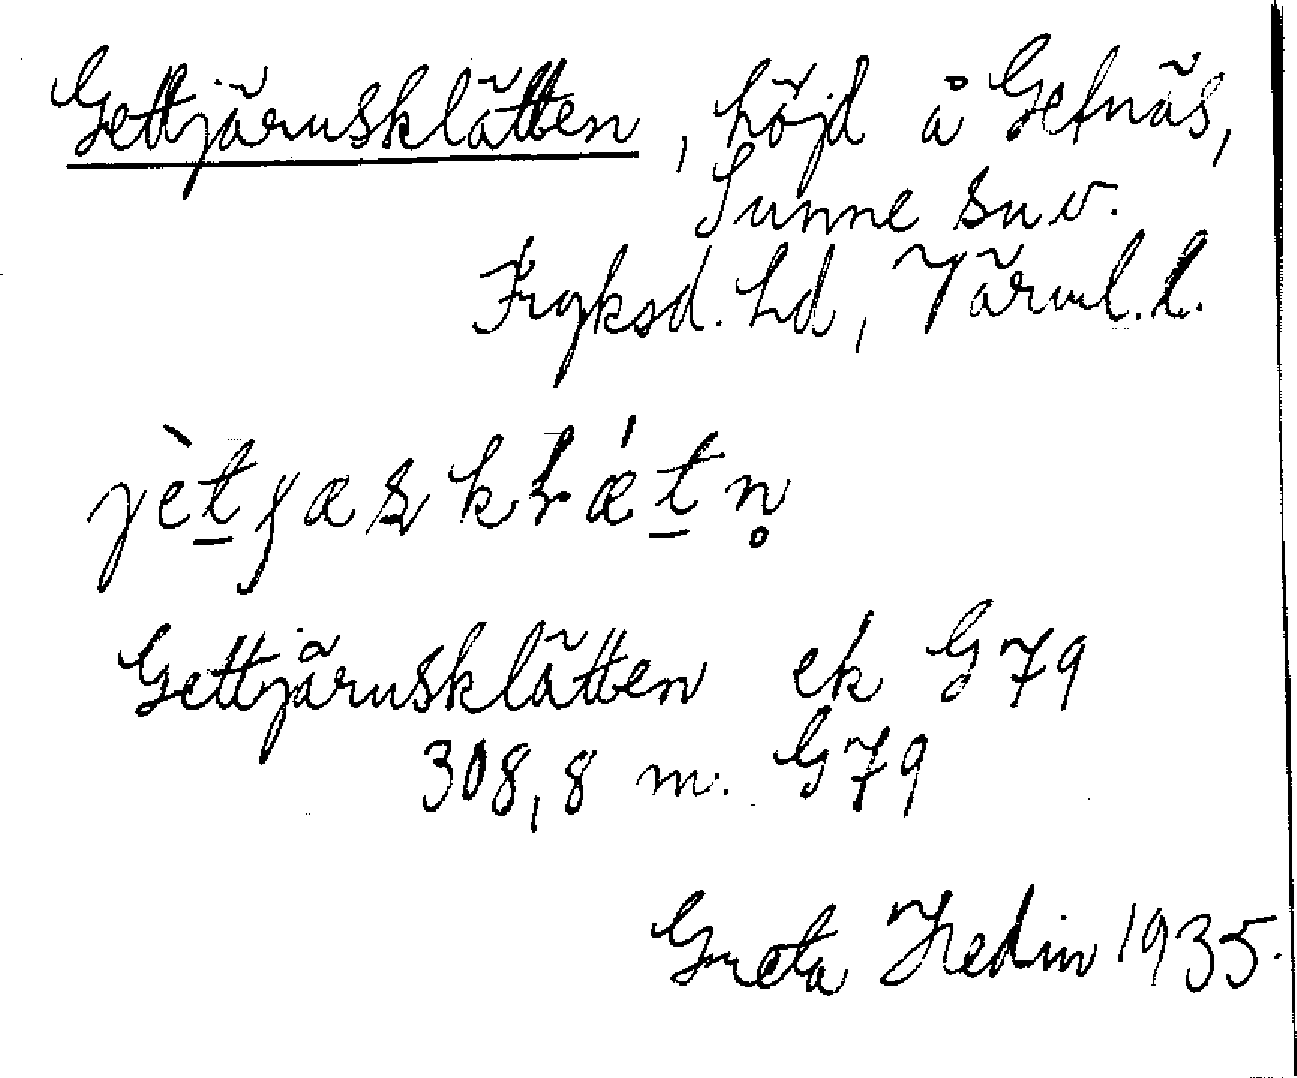 Gettjärnsklätten, höjd å Getnäs,
Sunne sn v.
Fryksd. hd, Värml. l.
Gettjärnsklätten ek G79
308,8 m. G79
Greta Hedin 1935.